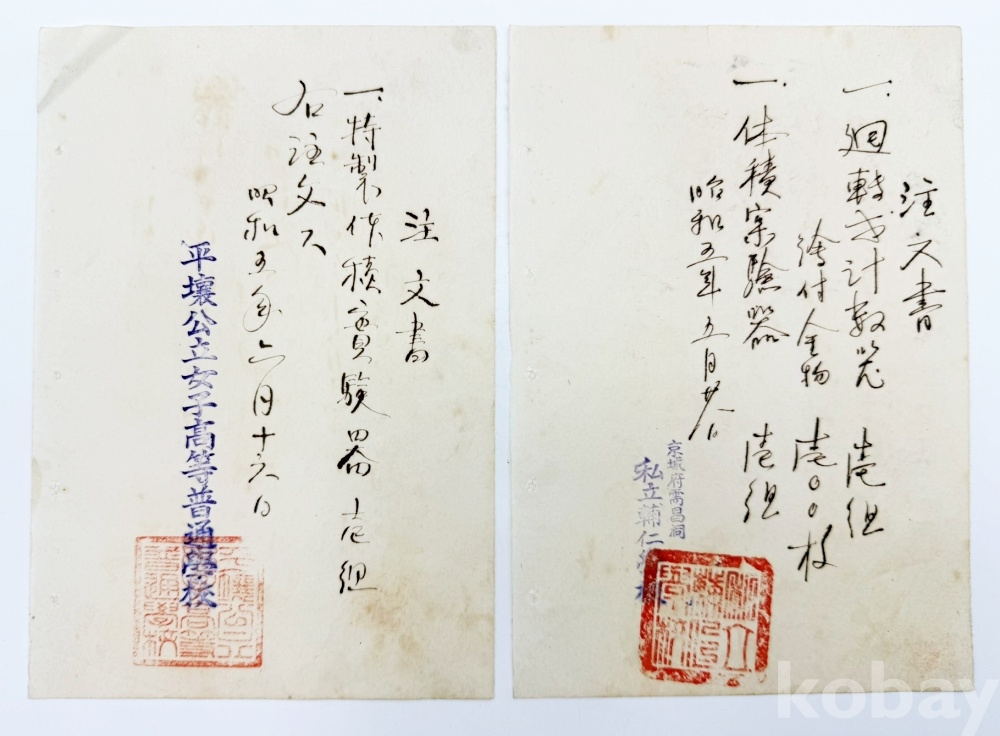 注文書
一、廻轉式計数器 壱組
繪付金物 壱〇〇枚
一、体積実験器 壱組
昭和五年五月廿八日
京城府需昌洞
私立輔仁學校
注文書
一、特製体積実験器 壱組
右注文ス
昭和五年六月十六日
平壤公立女子高等普通學校
kobay